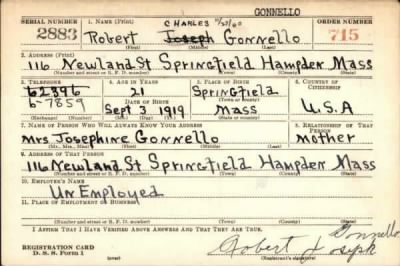 GONNELLO
SERIAL NUMBER 1. NAME (Print) CHARLES 11/23/60 ORDER NUMBER
2883 Robert Joseph Gonnello 715
(First) (Middle) (Last)
2. ADDRESS (Print)
116 Newland St Springfield Hampden Mass
(Number and street or R. F. D. number) (Town) (County) (State)
3. TELEPHONE 4. AGE IN YEARS 5. PLACE OF BIRTH 6. COUNTRY OF CITIZENSHIP
62396 21 Springfield
6-7859 DATE OF BIRTH (Town or county)
Sept 3 1919 Mass U.S.A
(Exchange) (Number) (Mo.) (Day) (Yr.) (State or country)
7. NAME OF PERSON WHO WILL ALWAYS KNOW YOUR ADDRESS 8. RELATIONSHIP OF THAT PERSON
Mrs Josephine Gonnello mother
(Mr., Mrs., Miss) (First) (Middle) (Last)
9. ADDRESS OF THAT PERSON
116 Newland St Springfield Hampden Mass
(Number and street or R. F. D. number) (Town) (County) (State)
10. EMPLOYER'S NAME
UnEmployed
11. PLACE OF EMPLOYMENT OR BUSINESS
(Number and street or R. F. D. number) (Town) (County) (State)
I AFFIRM THAT I HAVE VERIFIED ABOVE ANSWERS AND THAT THEY ARE TRUE.
REGISTRATION CARD
D. S. S. Form 1
Robert Joseph Gonnello
(Registrant's signature)